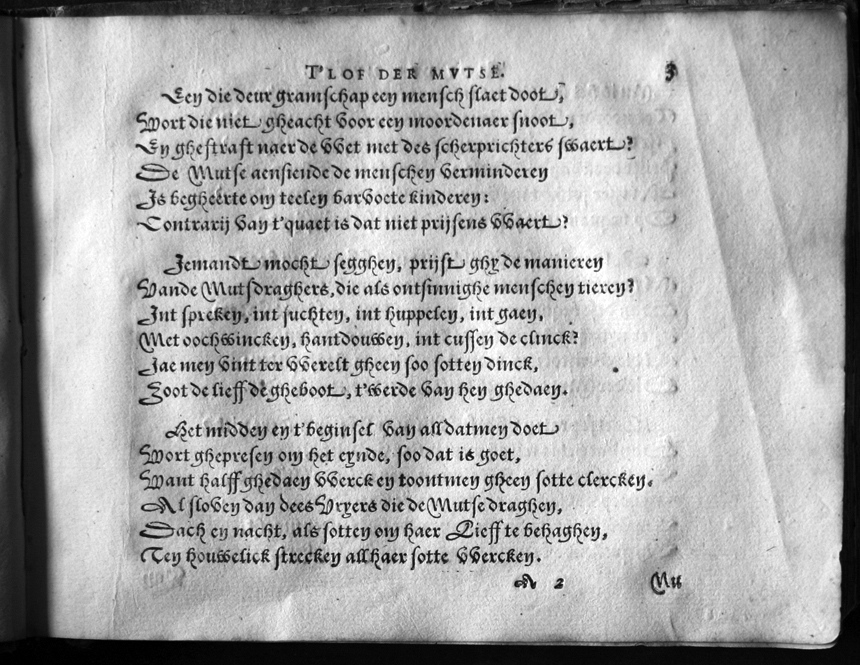 T'LOF DER MVTSE. 3
Een die deur gramschap een mensch slaet doot,
Wort die niet gheacht voor een moordenaer snoot,
En ghestraft naer de VVet met des scherprichters swaert?
De Mutse aensiende de menschen verminderen
Is begheerte om teelen barvoete kinderen:
Contrarij van t'quaet is dat niet prijsens VVaert?
Iemandt mocht segghen, prijst ghy de manieren
Vande Mutsdraghers, die als ontsinnighe menschen tieren?
Int spreken, int suchten, int huppelen, int gaen,
Met oochwincken, hantdouwen, int cussen de clinck?
Jae men vint ter VVerelt gheen soo sotten dinck,
Zoot de lieff de gheboot, t'werde van hen ghedaen.
Het midden en t'beginsel van all datmen doet
Wort ghepresen om het eynde, soo dat is goet,
Want halff ghedaen VVerck en toontmen gheen sotte clercken.
Al sloven dan dees Vryers die de Mutse draghen,
Dach en nacht, als sotten om haer Lieff te behaghen,
Ten houwelick strecken all haer sotte VVercken.
A 2 Mu